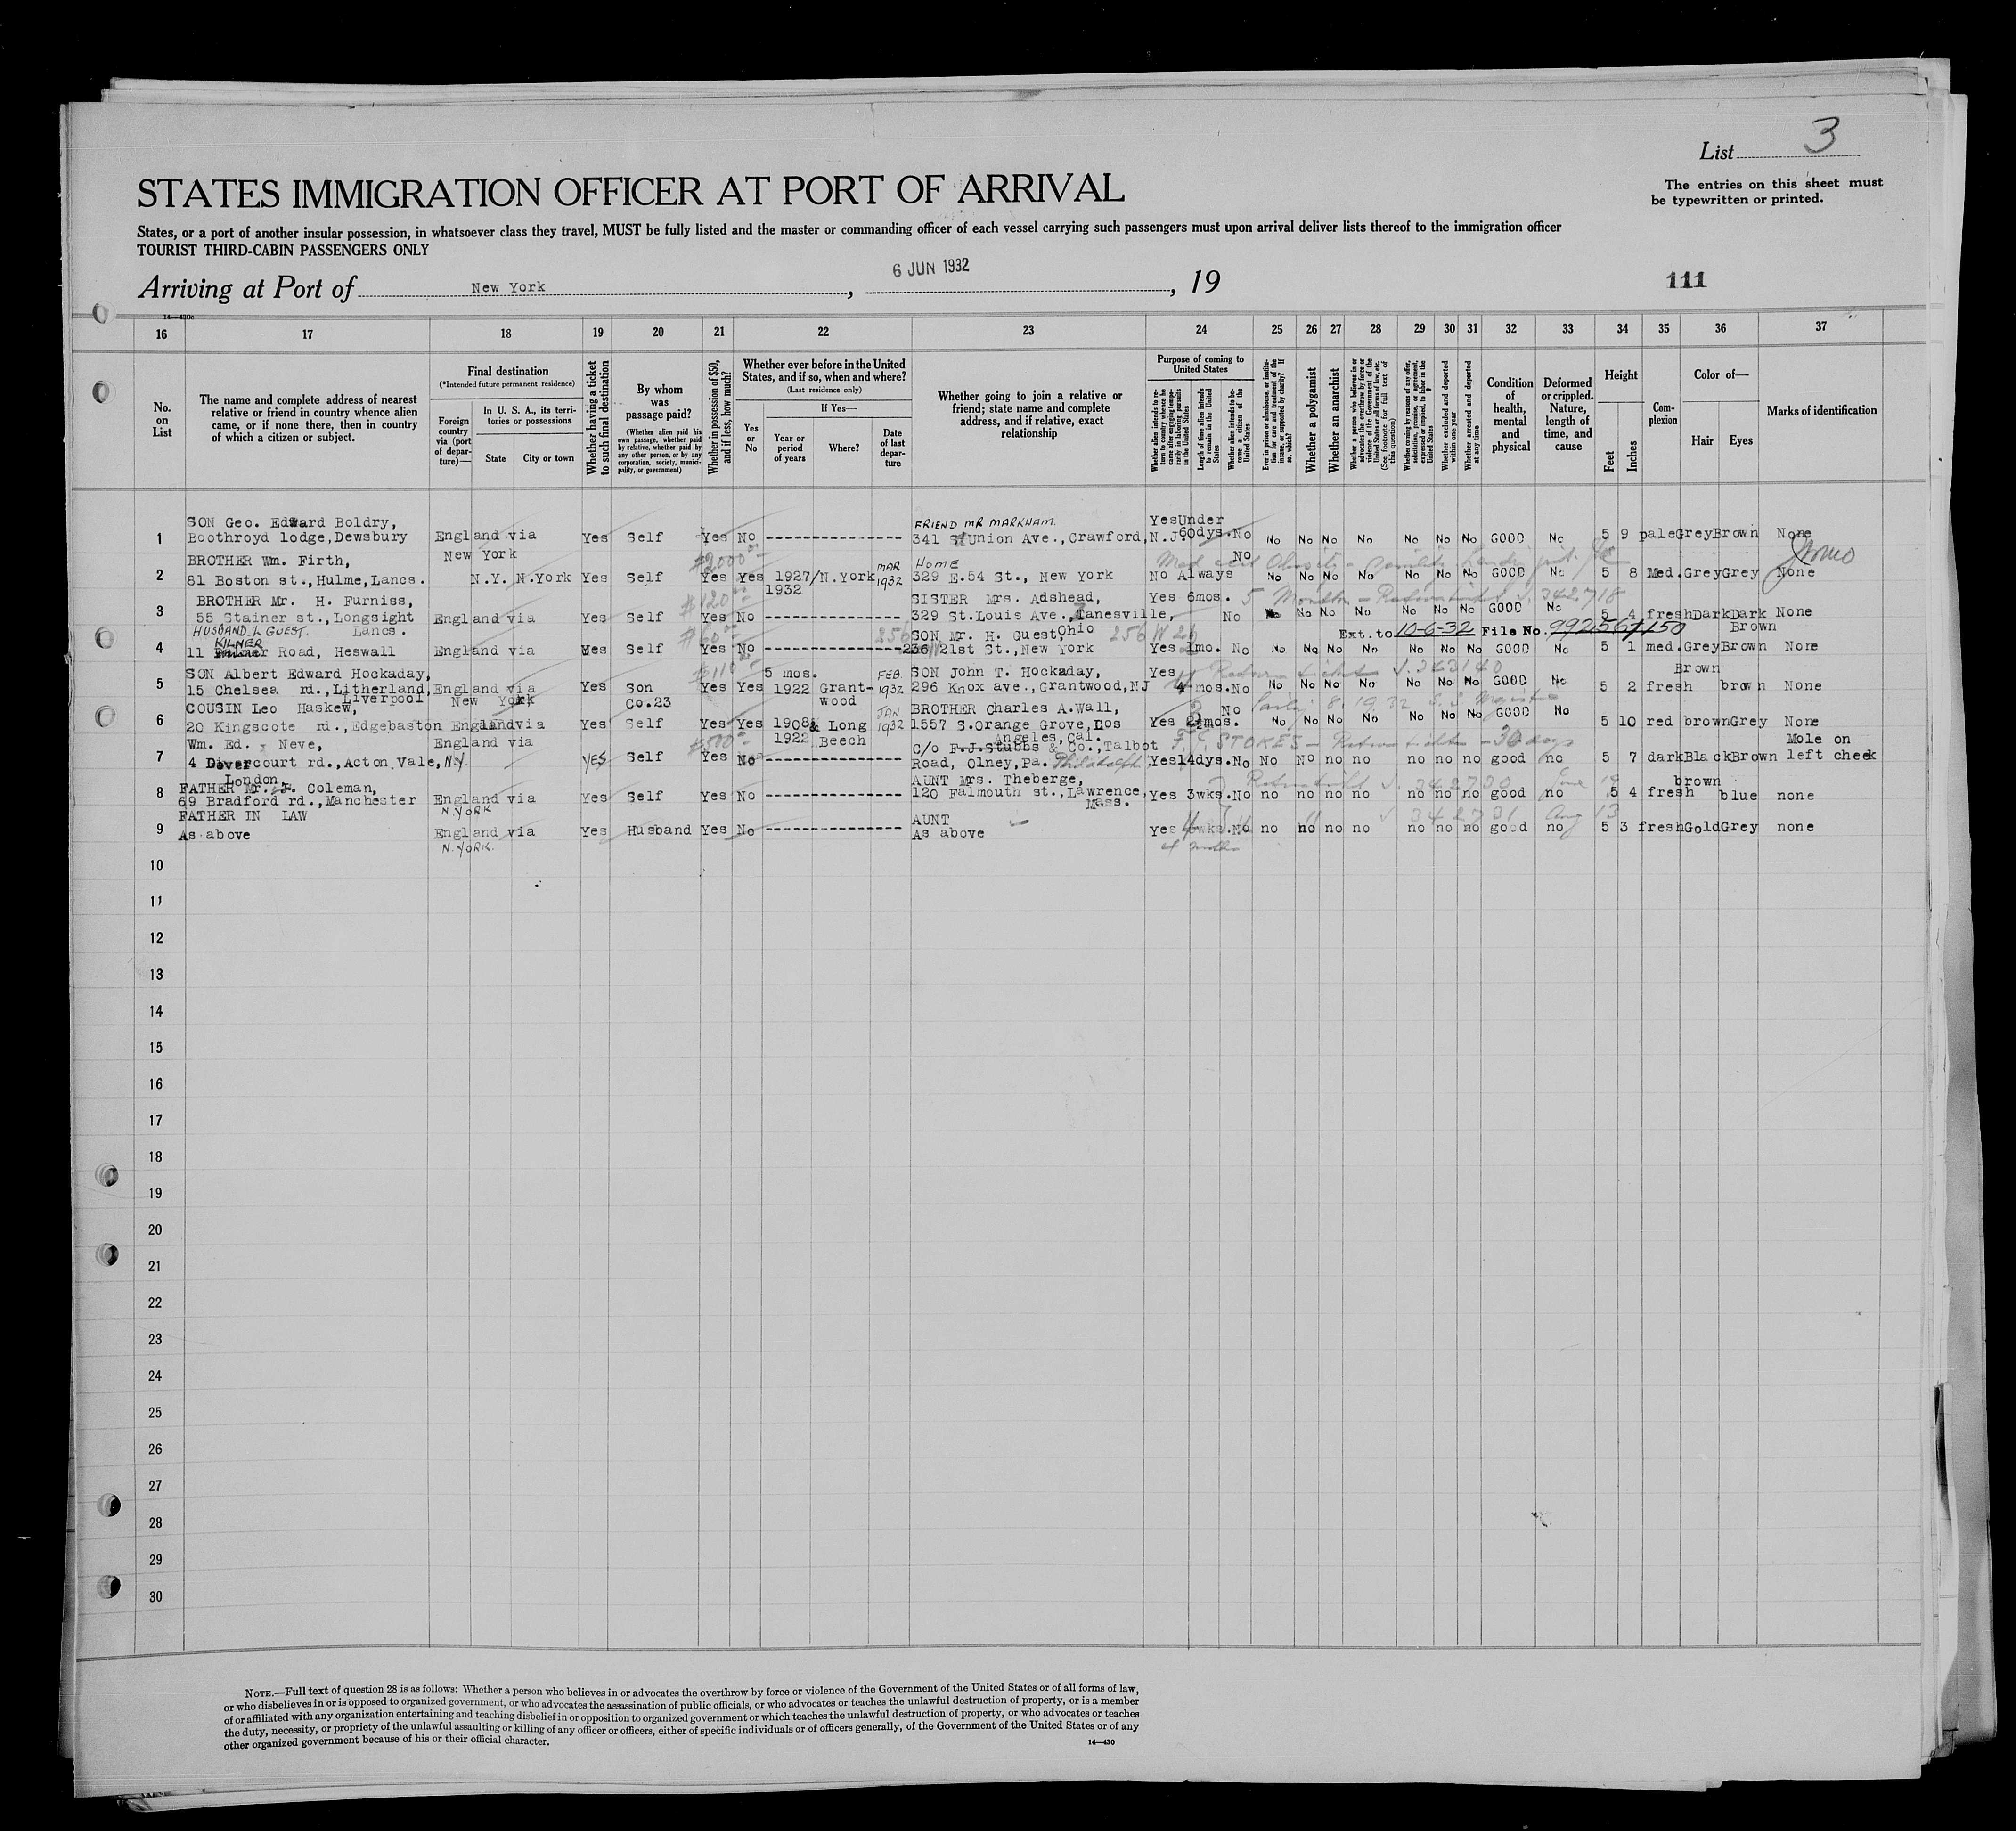 List 3
The entries on this sheet must
be typewritten or printed.
STATES IMMIGRATION OFFICER AT PORT OF ARRIVAL
States, or a port of another insular possession, in whatsoever class they travel, MUST be fully listed and the master or commanding officer of each vessel carrying such passengers must upon arrival deliver lists thereof to the immigration officer
TOURIST THIRD-CABIN PASSENGERS ONLY
Arriving at Port of New York, 6 JUN 1932, 19
111
14—430c
16 17 18 19 20 21 22 23 24 25 26 27 28 29 30 31 32 33 34 35 36 37
No. on List
The name and complete address of nearest relative or friend in country whence alien came, or if none there, then in country of which a citizen or subject.
Final destination
(*Intended future permanent residence)
Foreign country via (port of departure)—
In U. S. A., its territories or possessions
State
City or town
Whether having a ticket to such final destination
By whom was passage paid?
(Whether alien paid his own passage, whether paid by relative, whether paid by any other person, or by any corporation, society, municipality, or government)
Whether in possession of $50, and if less, how much?
Whether ever before in the United States, and if so, when and where?
(Last residence only)
Yes or No
If Yes—
Year or period of years
Where?
Date of last departure
Whether going to join a relative or friend; state name and complete address, and if relative, exact relationship
Purpose of coming to United States
Whether alien intends to return to country whence he came after engaging temporarily in laboring pursuits in the United States
Length of time alien intends to remain in the United States
Whether alien intends to become a citizen of the United States
Ever in prison or almshouse, or institution for care and treatment of the insane, or supported by charity? If so, which?
Whether a polygamist
Whether an anarchist
Whether a person who believes in or advocates the overthrow by force or violence of the Government of the United States or all forms of law, etc. (See footnote for full text of this question)
Whether coming by reasons of any offer, solicitation, promise, or agreement, expressed or implied, to labor in the United States
Whether excluded and deported within one year
Whether arrested and deported at any time
Condition of health, mental and physical
Deformed or crippled. Nature, length of time, and cause
Height
Feet
Inches
Complexion
Color of—
Hair
Eyes
Marks of identification
SON Geo. Edward Boldry, FRIEND MR MARKHAM. Yes Under
1 Boothroyd lodge, Dewsbury England via New York Yes Self Yes No 341 Union Ave., Crawford, N.J 60dys. No No No No No No No No GOOD No 5 9 pale Grey Brown None
BROTHER Wm. Firth, $2000 MAR HOME No
2 81 Boston st., Hulme, Lancs. N.Y. N.York Yes Self Yes Yes 1927/1932 N.York 1932 329 E.54 St., New York No Always No No No No No No No GOOD No 5 8 Med. Grey Grey None
BROTHER Mr. H. Furniss, $120 SISTER Mrs. Adshead, Yes 6mos. 5 Months J. 342718
3 55 Stainer st., Longsight Lancs. England via Yes Self Yes No 329 St.Louis Ave., Zanesville, Ohio No No No No No No No No GOOD No 5 4 fresh Dark Dark Brown None
HUSBAND. L GUEST. $60 SON Mr. H. Guest 256 W 21 Ext. to 10-6-32 File No. 99256/150
4 11 KILNER Road, Heswall England via Yes Self Yes No 21st St., New York Yes 1mo. No No No No No No No No GOOD No 5 1 med. Grey Brown None
SON Albert Edward Hockaday, $110 5 mos. FEB. SON John T. Hockaday, Yes J. 343140 Brown
5 15 Chelsea rd., Litherland, Liverpool England via New York Yes Son Co.23 Yes Yes 1922 Grantwood 1932 296 Knox ave., Grantwood, NJ 4 mos. No No No No No No No No GOOD No 5 2 fresh brown None
COUSIN Leo Haskew, JAN BROTHER Charles A. Wall, No
6 20 Kingscote rd., Edgebaston England via Yes Self Yes Yes 1908 & 1922 Long Beech 1932 1557 S.Orange Grove, Los Angeles, Cal. Yes 2½mos. No No No No No No No GOOD No 5 10 red brown Grey None
Wm. Ed. Neve, England via $500 c/o F.J.Stubbs & Co., Talbot F. J. STOKES 30 days Mole on
7 4 Dovercourt rd., Acton Vale, London N.Y. YES Self Yes No Road, Olney, Pa. Philadelphia Yes 14dys. No No No no no no no no good no 5 7 dark Black Brown left cheek
FATHER Mr. Coleman, AUNT Mrs. Theberge, J. 342730 June 19 brown
8 69 Bradford rd., Manchester England via N.YORK Yes Self Yes No 120 Falmouth st., Lawrence, Mass. Yes 3wks. No no no no no no no no good no 5 4 fresh blue none
FATHER IN LAW AUNT 342731 Aug 13
9 As above England via N.YORK. Yes Husband Yes No As above Yes wks. No no no no no no no no good no 5 3 fresh Gold Grey none
4 months
10
11
12
13
14
15
16
17
18
19
20
21
22
23
24
25
26
27
28
29
30
NOTE.—Full text of question 28 is as follows: Whether a person who believes in or advocates the overthrow by force or violence of the Government of the United States or of all forms of law,
or who disbelieves in or is opposed to organized government, or who advocates the assassination of public officials, or who advocates or teaches the unlawful destruction of property, or is a member
of or affiliated with any organization entertaining and teaching disbelief in or opposition to organized government or which teaches the unlawful destruction of property, or who advocates or teaches
the duty, necessity, or propriety of the unlawful assaulting or killing of any officer or officers, either of specific individuals or of officers generally, of the Government of the United States or of any
other organized government because of his or their official character.
14—430